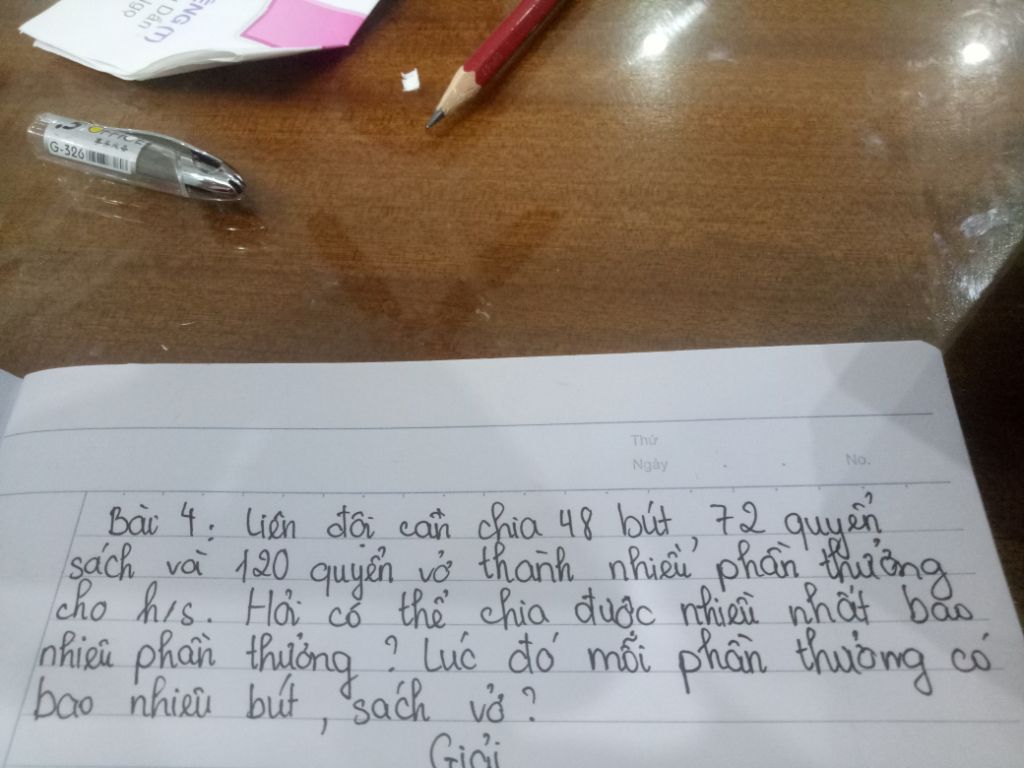 ÊNG (T)
Dân
Ngo
OFFICE
G-326
Thứ
Ngày
No.
Bài 4: Liên đội cần chia 48 bút, 72 quyển
sách và 120 quyển vở thành nhiều phần thưởng
cho h/s. Hỏi có thể chia được nhiều nhất bao
nhiêu phần thưởng? Lúc đó mỗi phần thưởng có
bao nhiêu bút, sách vở?
Giải